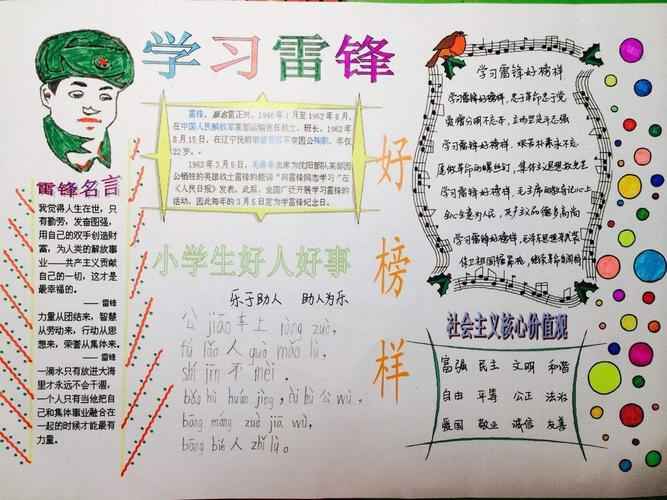 学习雷锋
好榜样
雷锋名言
我觉得人生在世，只
有勤劳，发奋图强，
用自己的双手创造财
富，为人类的解放事
业——共产主义贡献
自己的一切，这才是
最幸福的。
——雷锋
力量从团结来，智慧
从劳动来，行动从思
想来，荣誉从集体来。
——雷锋
一滴水只有放进大海
里才永远不会干涸，
一个人只有当他把自
己和集体事业融合在
一起的时候才能最有
力量。
雷锋，原名雷正兴，1940年1月至1962年8月，
在中国人民解放军某部运输连任班长。1962年
8月15日，在辽宁抚顺因公殉职，年仅
22岁。
1963年3月5日，毛泽东为沈阳部队某部因
公牺牲的英雄战士雷锋的题词“向雷锋同志学习”在
《人民日报》发表。此后，全国广泛开展学习雷锋的
活动，因此每年的3月5日定为学雷锋纪念日。
小学生好人好事
乐于助人 助人为乐
公jiāo车上ràng zuò，
fú lǎo人guò mǎ lù，
shí jīn不mèi，
bǎo hù huán jìng，ài hù公wù，
bāng máng zuò jiā wù，
bāng bié人zhǐ lù。
学习雷锋好榜样
学习雷锋好榜样，忠于革命忠于党
爱憎分明不忘本，立场坚定斗志强
学习雷锋好榜样，艰苦朴素永不忘
愿做革命的螺丝钉，集体主义思想放光芒
学习雷锋好榜样，毛主席的教导记心上
全心全意为人民，共产主义品德多高尚
学习雷锋好榜样，毛泽东思想来武装
保卫祖国握紧枪，继续革命当闯将
社会主义核心价值观
富强 民主 文明 和谐
自由 平等 公正 法治
爱国 敬业 诚信 友善